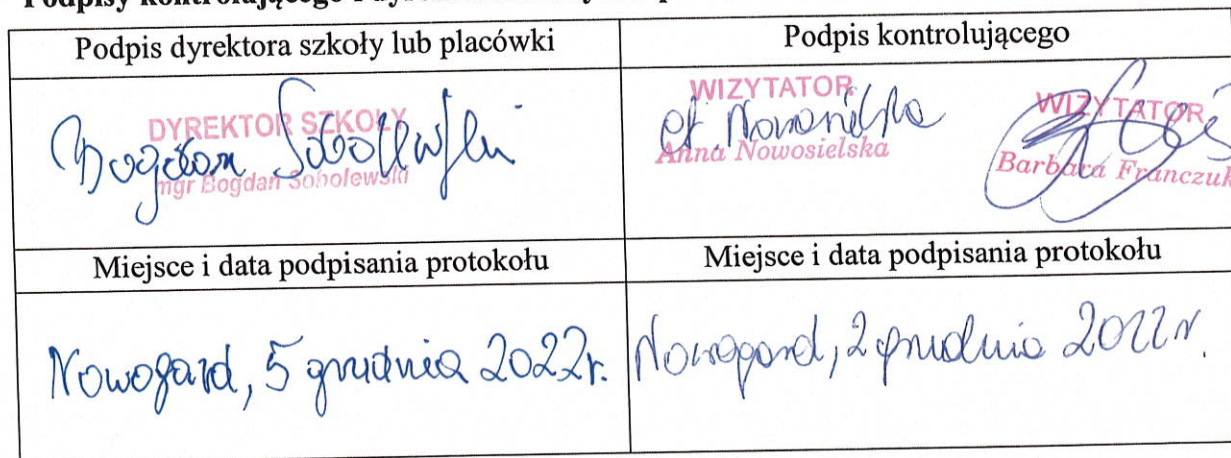 Podpis dyrektora szkoły lub placówki
Podpis kontrolującego
DYREKTOR SZKOŁY
mgr Bogdan Sobolewski
Bogdan Sobolewski
WIZYTATOR
Anna Nowosielska
A. Nowosielska
WIZYTATOR
Barbara Franczuk
Miejsce i data podpisania protokołu
Miejsce i data podpisania protokołu
Nowogard, 5 grudnia 2022r.
Nowogard, 2 grudnia 2022 r.